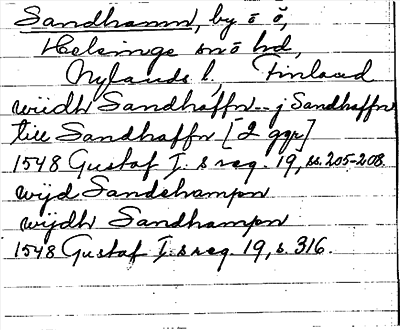 Sandhamn, by o ö,
Helsinge snö hd,
Nylands l, Finland
wiidh Sandhaffn -- j Sandhaffn
till Sandhaffn [2 ggr]
1548 Gustaf I.s reg. 19, ss. 205-208.
wijd Sandehampn
wijdh Sandhampn
1548 Gustaf I.s reg. 19, s. 316.